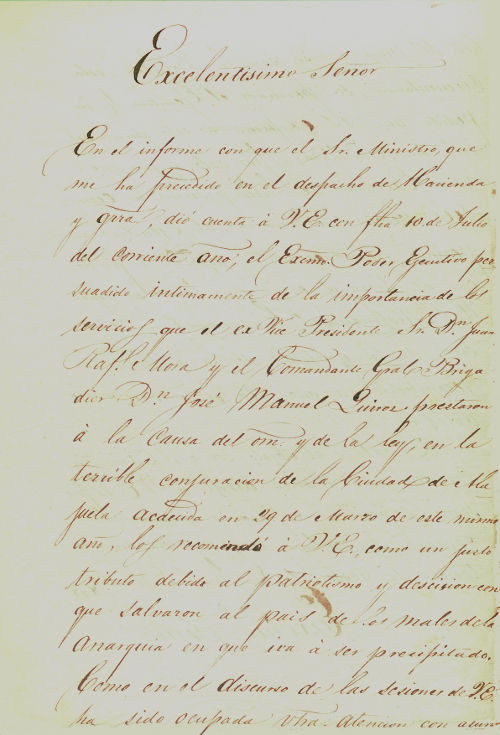 Excelentisimo Señor
En el informe con que el Sr. Ministro, que
me ha precedido en el despacho de Hacienda
y grra, dió cuenta à V.E. con fha 10 de Julio
del corriente año; el Exmo. Poder Ejecutivo per
suadido intimamente de la importancia de los
servicios que el ex Vice Presidente Sr. Dn. Juan
Raf. Mora y el Comandante Gral Briga
dier Dn José Manuel Quiros prestaron
à la causa del orn. y de la ley, en la
terrible conjuracion de la Ciudad de Ala
juela acaecida en 29 de Marzo de este mismo
año, los recomendó à V.E. como un justo
tributo debido al patriotismo y descicion con
que salvaron al pais de los males de la
Anarquia en que iva à ser precipitado.
Como en el discurso de las sesiones de V.E.
ha sido ocupada vtra. atencion con asun